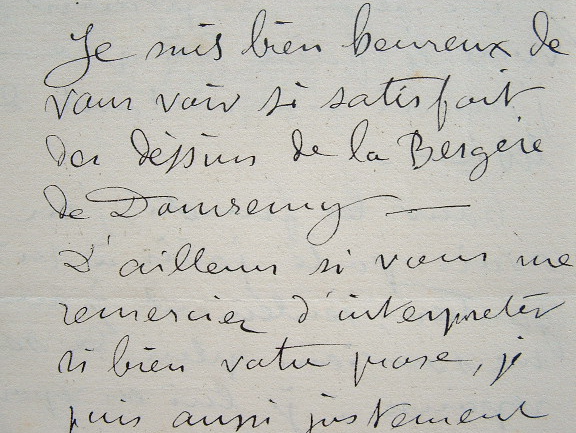 Je suis bien heureux de
vous voir si satisfait
des dessins de la Bergère
de Domremy —
D'ailleurs si vous me
remerciez d'interpreter
si bien votre prose, je
puis aussi justement